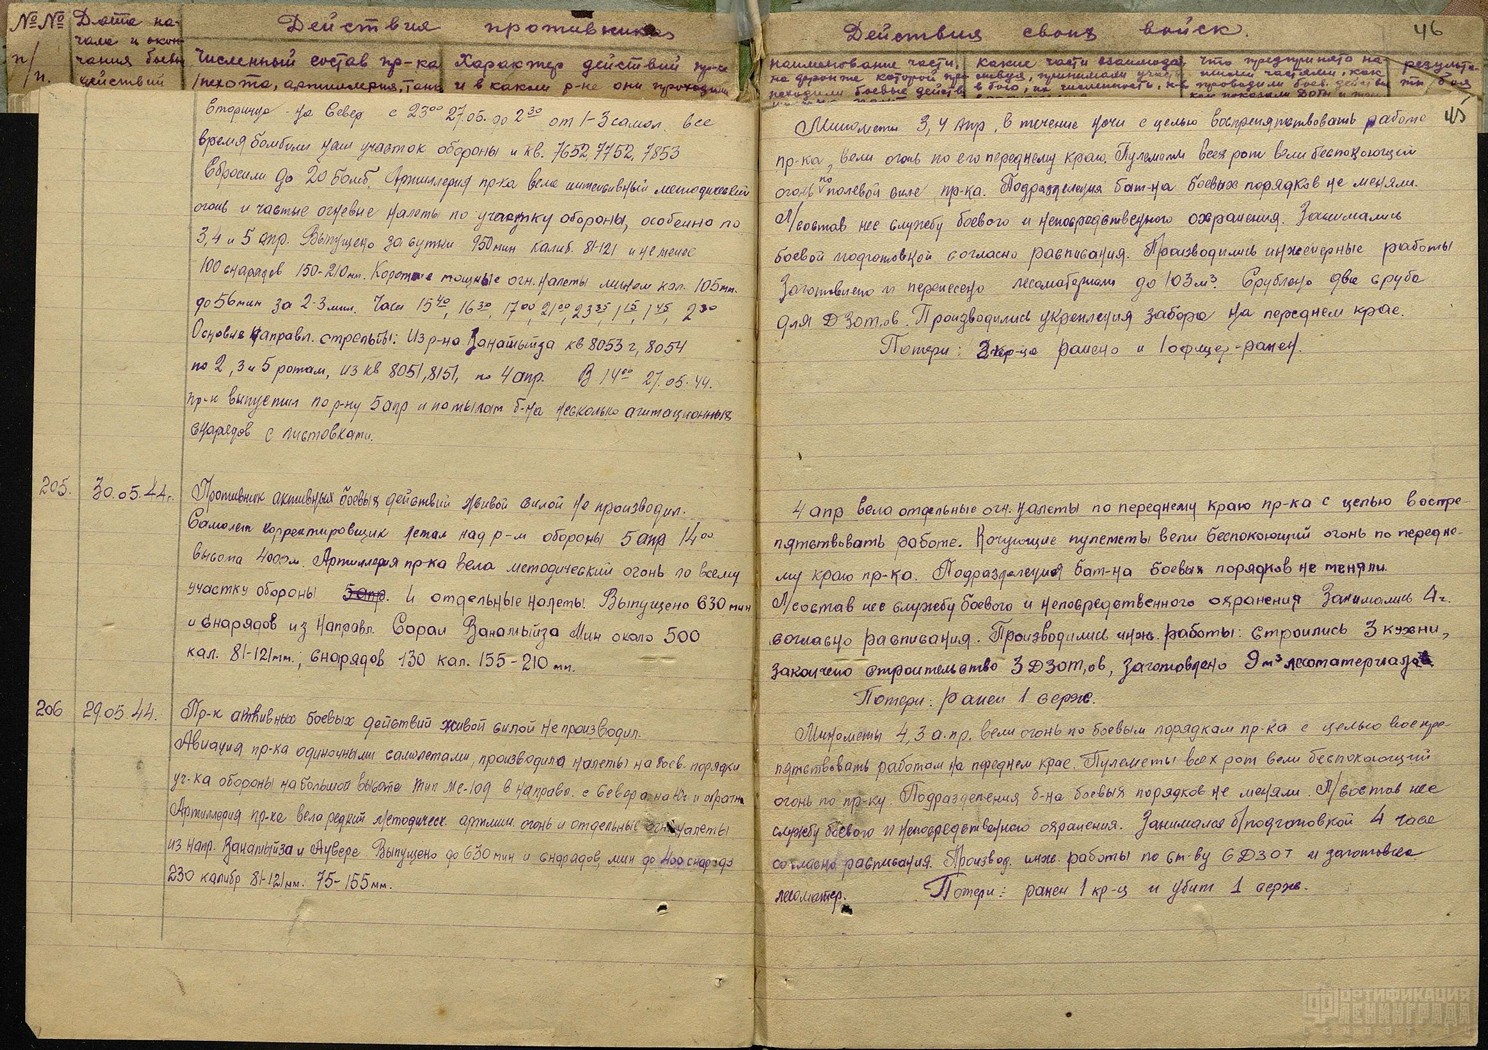 №№ п/п.
Дата начала и окончания боевых действий
Действия противника
Численный состав пр-ка /пехота, артиллерия, танк
Характер действий пр-ка и в каком р-не они проходили
Действия своих войск.
46
45
наименование части,
какие части взаимодей
что предпринято на-
результа-
на фронте которой пр
в бою, их численность,
шими частями, как
ты боя
проводили боев. действи
время бомбили наш участок обороны и кв. 7652, 7752, 7853
Сбросили до 20 бомб. Артиллерия пр-ка вела интенсивный методический
огонь и частые огневые налеты по участку обороны, особенно по
3, 4 и 5 апр. Выпущено за сутки 950 мин калиб. 81-121 и не менее
100 снарядов 150-210мм. Короткие мощные огн. налеты минам кал. 105мм.
до 56 мин за 2-3 мин. Часы 15⁴⁰, 16³⁰, 17⁰⁰, 21⁰⁰, 23³⁵, 1¹⁵, 1⁴⁵, 2³⁰
Основные направл. стрельбы: Из р-на Ванамыйза кв 8053г, 8054
по 2, 3 и 5 ротам, из кв 8051, 8151, по 4 апр. В 14⁰⁰ 27.05.44.
пр-к выпустил по р-ну 5 апр и по тылам б-на несколько агитационных
снарядов с листовками.
Минометы 3, 4 апр, в течение ночи с целью воспрепятствовать работе
пр-ка, вели огонь по его переднему краю. Пулеметы всех рот вели беспокоющий
огонь по полевой силе пр-ка. Подразделения бат-на боевых порядков не меняли.
Л/состав нес службу боевого и непосредственного охранения. Занимались
боевой подготовкой согласно расписания. Производились инженерные работы
Заготовлено и перенесено лесоматериала до 103м³. Срублено два сруба
для ДЗОТ,ов. Производились укрепления забора на переднем крае.
Потери: 2 кр-ца ранено и 1 офицер-ранен.
205.
30.05.44г.
Противник активных боевых действий живой силой не производил.
Самолет корректировщик летал над р-м обороны 5 апр 14⁰⁰
высота 4000м. Артиллерия пр-ка вела методический огонь по всему
участку обороны 5 апр. и отдельные налеты. Выпущено 630 мин
и снарядов из направл. Сорал Ванамыйза Мин около 500
кал. 81-121мм., снарядов 130 кал. 155-210 мм.
4 апр вела отдельные огн. налеты по переднему краю пр-ка с целью воспре-
пятствовать работе. Кочующие пулеметы вели беспокоющий огонь по передне-
му краю пр-ка. Подразделения бат-на боевых порядков не меняли.
Л/состав нес службу боевого и непосредственного охранения Занимались 4ч.
согласно расписания. Производились инж. работы: строились 3 кухни,
закончено строительство 3 ДЗОТ,ов, заготовлено 9м³ лесоматериалов
Потери: ранен 1 серж.
206
29.05.44.
Пр-к активных боевых действий живой силой не производил.
Авиация пр-ка одиночными самолетами, производила налеты на боев. порядки
уч-ка обороны на большой высоте тип Ме-109 в направл. с севера на юг и обратно
Артиллерия пр-ка вела редкий методическ. артмин. огонь и отдельные огн налеты
из напр. Ванамыйза и Аувере Выпущено до 630 мин и снарядов, мин до 400 снарядо
230 калибр 81-121мм. 75-155мм.
Минометы 4, 3 а.пр. вели огонь по боевым порядкам пр-ка с целью воспре-
пятствовать работам на переднем крае. Пулеметы всех рот вели беспокоющий
огонь по пр-ку. Подразделения б-на боевых порядков не меняли. Л/состав нес
службу боевого и непосредственного охранения. Занимался б/подготовкой 4 часа
согласно расписания. Производ. инж. работы по ст-ву 6 ДЗОТ и заготовке
лесоматер.
Потери: ранен 1 кр-ц и убит 1 серж.
ФОРТИФИКАЦИЯ
ЛЕНИНГРАДА